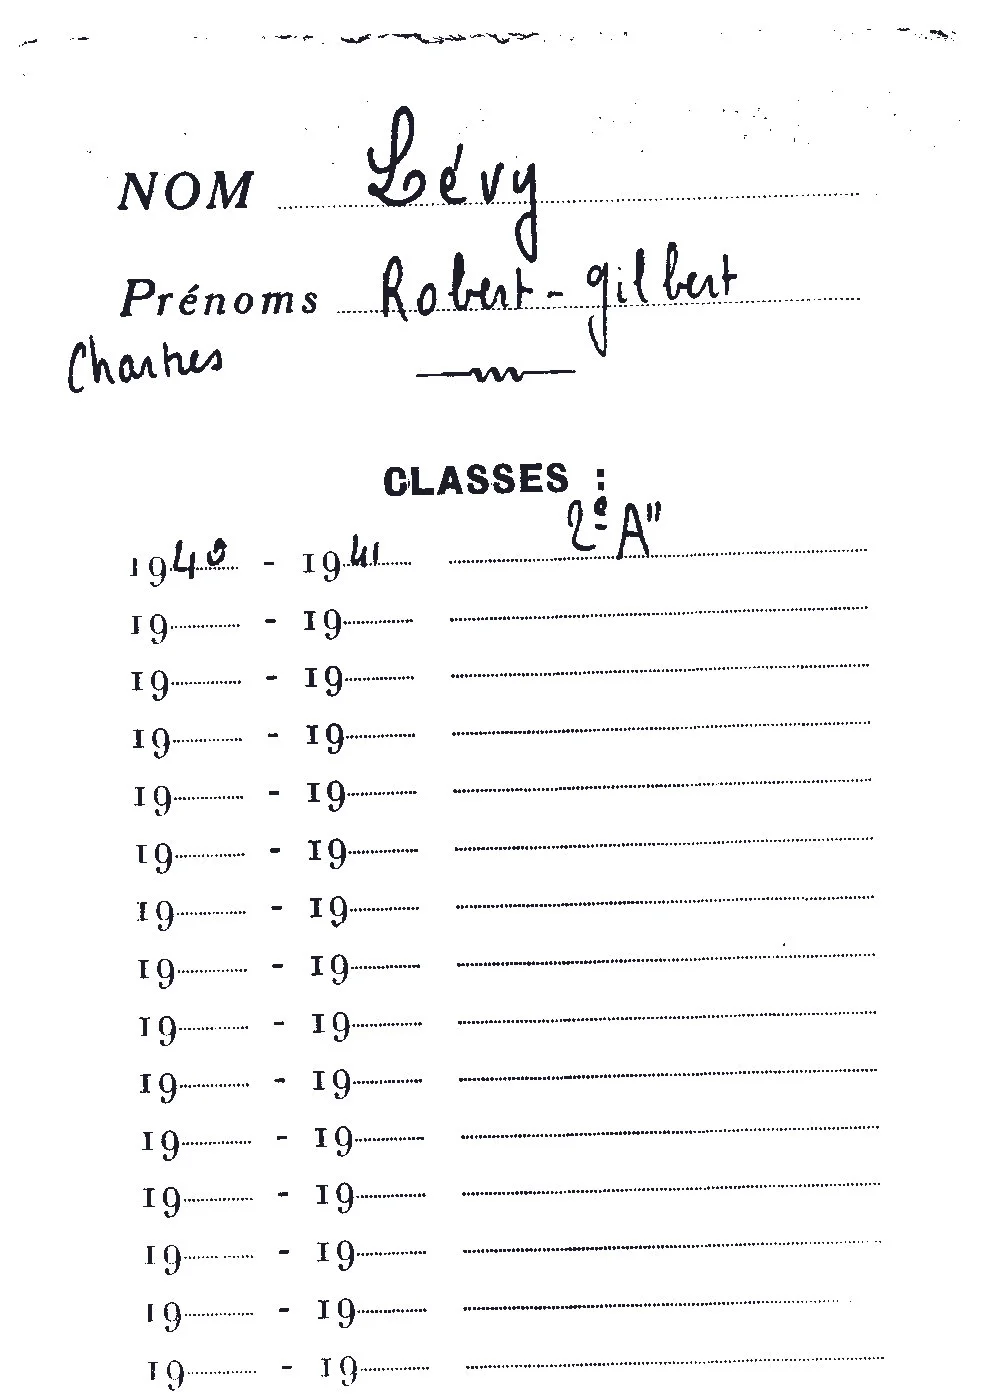 NOM Lévy
Prénoms Robert-gilbert
Chartres
CLASSES :
1940 - 1941 2e A"
19 - 19
19 - 19
19 - 19
19 - 19
19 - 19
19 - 19
19 - 19
19 - 19
19 - 19
19 - 19
19 - 19
19 - 19
19 - 19
19 - 19